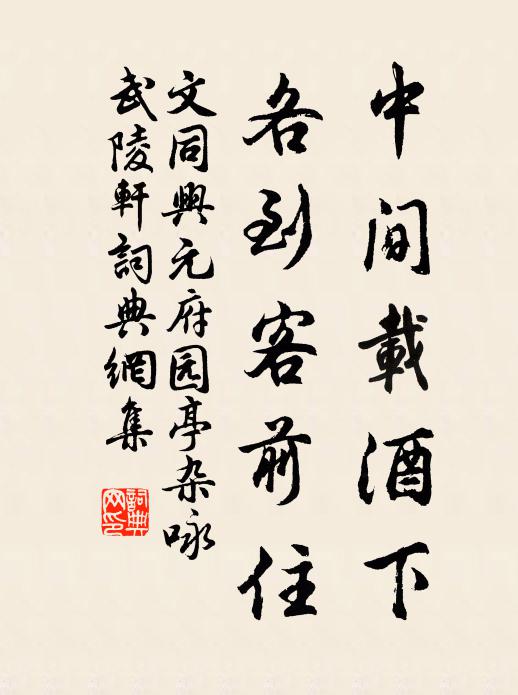 中间載酒下
各到客前住
文同興元府园亭杂咏
武陵軒詞典網集
詞典网印